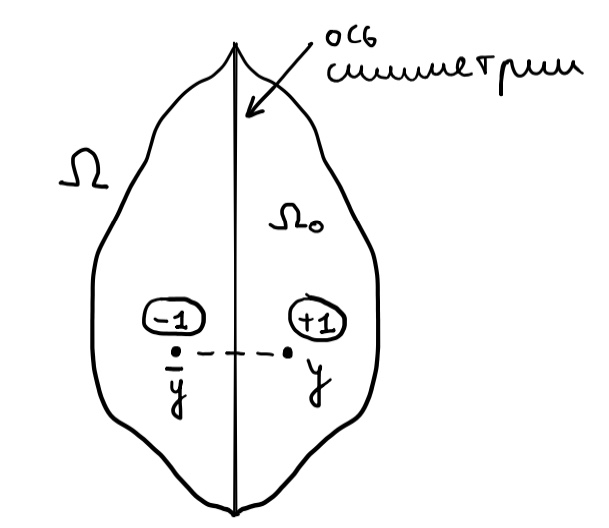 ось
симметрии
Ω
Ω₀
-1
+1
ȳ
y